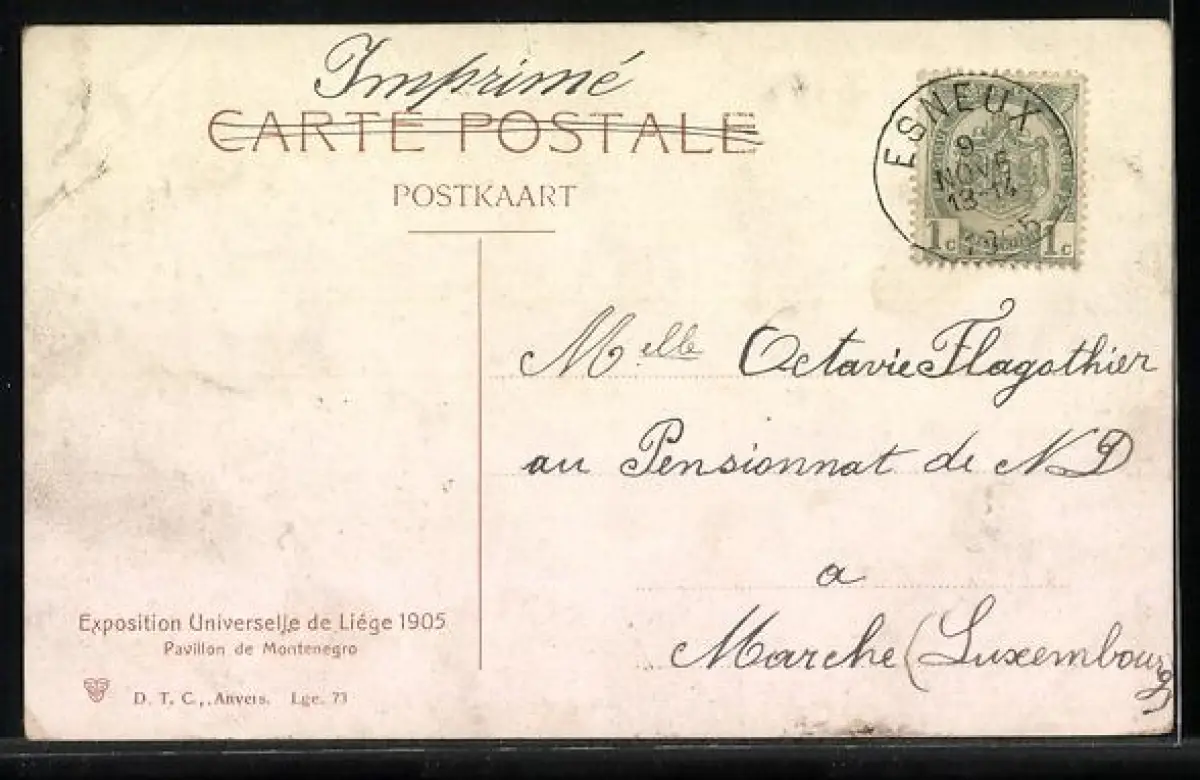 Imprimé
CARTE POSTALE
POSTKAART
ESNEUX
9
NOVE
13-14
1905
1c 1c
Melle Octavie Flagothier
au Pensionnat de N D
a
Marche (Luxembourg)
Exposition Universelle de Liége 1905
Pavillon de Montenegro
D. T. C., Anvers. Lge. 73